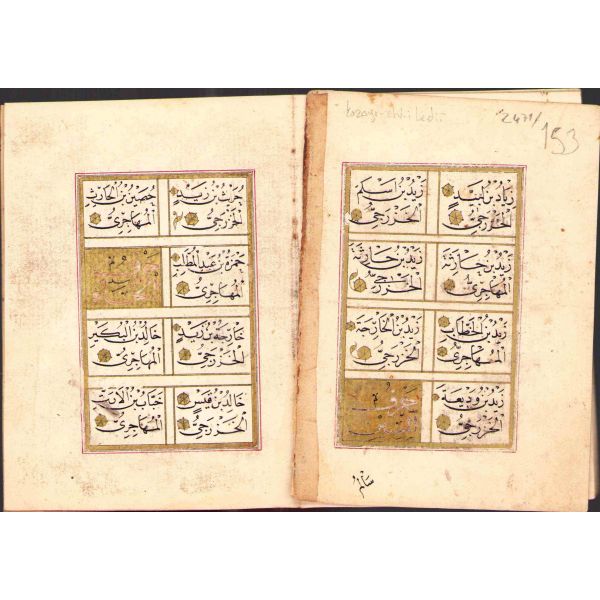 2471/
193
زياد بن لبيد
الخزرجي
زيد بن اسلم
الخزرجي
زيد بن حارثة
المهاجري
زيد بن حارثة
الخزرجي
زيد بن الخطاب
المهاجري
زيد بن الخارجة
الخزرجي
زيد بن وديعة
الخزرجي
حرف
السين
سالم
حريث بن زيد
الخزرجي
حصين بن الحارث
المهاجري
حمزة بن عبد المطلب
المهاجري
خارجة بن زيد
الخزرجي
خالد بن البكير
المهاجري
خالد بن قيس
الخزرجي
خباب بن الارت
المهاجري